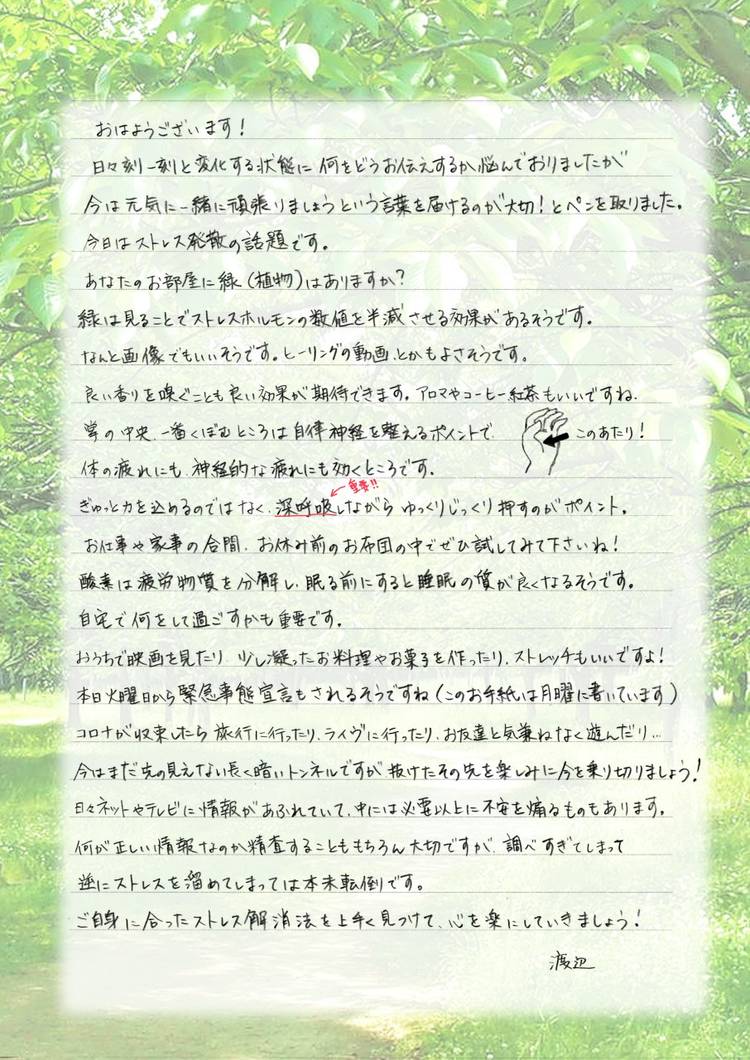 おはようございます！
日々刻一刻と変化する状態に何をどうお伝えするか悩んでおりましたが
今は元気に一緒に頑張りましょうという言葉を届けるのが大切！とペンを取りました。
今日はストレス発散の話題です。
あなたのお部屋に緑（植物）はありますか？
緑は見ることでストレスホルモンの数値を半減させる効果があるそうです。
なんと画像でもいいそうです。ヒーリングの動画とかもよさそうです。
良い香りを嗅ぐことも良い効果が期待できます。アロマやコーヒー紅茶もいいですね。
掌の中央、一番くぼむところは自律神経を整えるポイントで、 このあたり！
体の疲れにも、神経的な疲れにも効くところです。
重要!!
ぎゅっと力を込めるのではなく、深呼吸しながら ゆっくりじっくり押すのがポイント。
お仕事や家事の合間、お休み前のお布団の中でぜひ試してみて下さいね！
酸素は疲労物質を分解し、眠る前にすると睡眠の質が良くなるそうです。
自宅で何をして過ごすかも重要です。
おうちで映画を見たり 少し凝ったお料理やお菓子を作ったり、ストレッチもいいですよ！
本日火曜日から緊急事態宣言もされるそうですね（このお手紙は月曜に書いています）
コロナが収束したら 旅行に行ったり、ライヴに行ったり、お友達と気兼ねなく遊んだり…
今はまだ先の見えない長く暗いトンネルですが 抜けたその先を楽しみに今を乗り切りましょう！
日々ネットやテレビに情報があふれていて、中には必要以上に不安を煽るものもあります。
何が正しい情報なのか精査することももちろん大切ですが、調べすぎてしまって
逆にストレスを溜めてしまっては本末転倒です。
ご自身に合ったストレス解消法を上手く見つけて、心を楽にしていきましょう！
渡辺